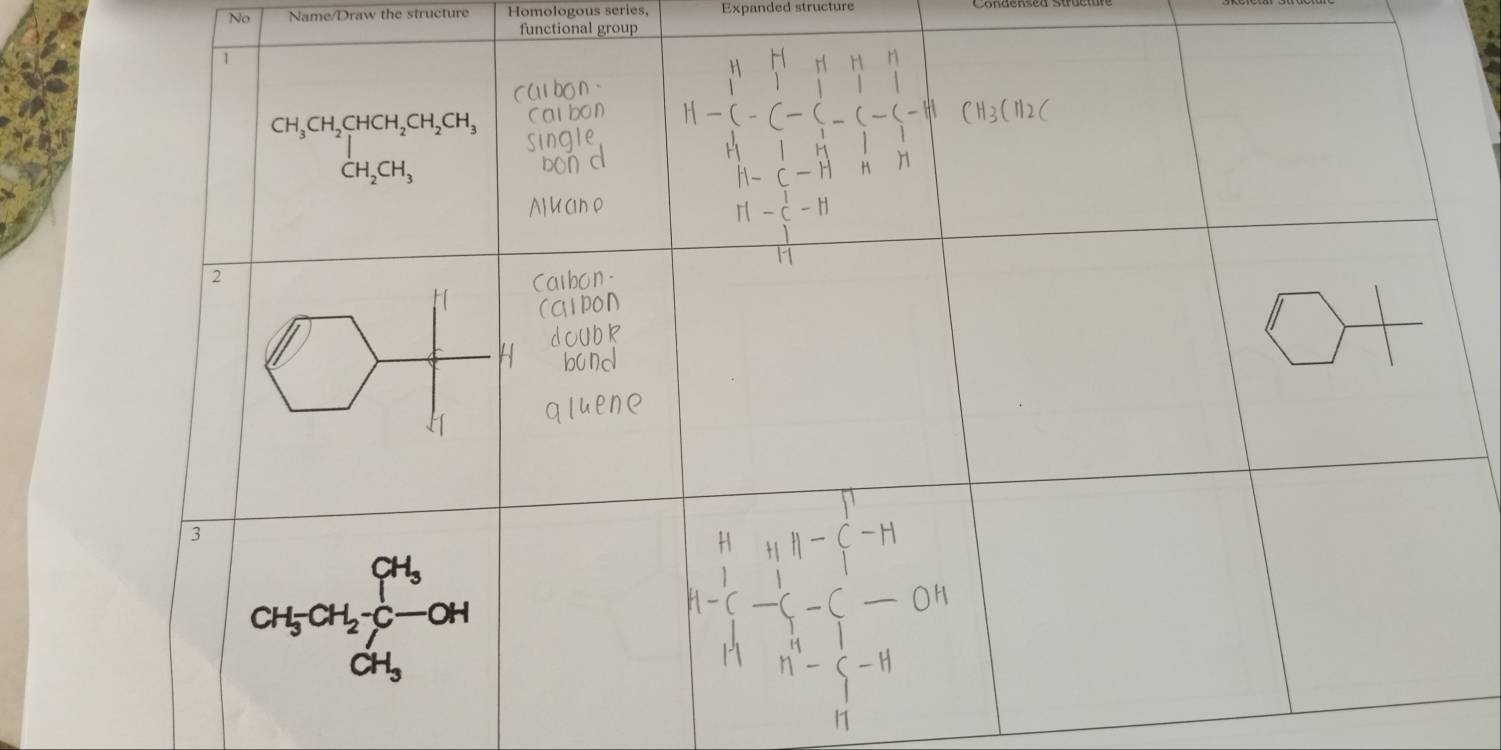 No
Name/Draw the structure
Homologous series,
functional group
Expanded structure
Condensed Structure
1
CH₃CH₂CHCH₂CH₂CH₃
CH₂CH₃
carbon-
carbon
single
bond
Alkane
H H H H H
H-C-C-C-C-C-H
H H H H
H-C-H
H-C-H
H
CH3CH2C
2
H
H
H
carbon-
carbon
double
bond
alkene
3
CH₃
CH₃-CH₂-C-OH
CH₃
H
H H H-C-H
H-C-C-C-OH
H H
H-C-H
H